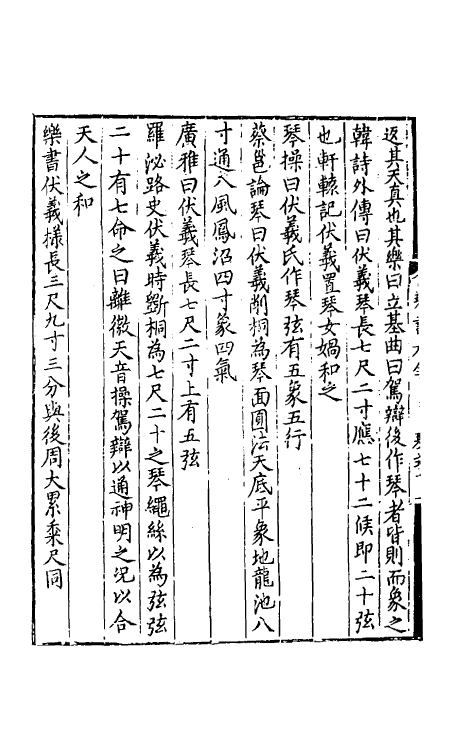 返其天真也其樂曰立基曲曰駕辯後作琴者皆則而象之
韓詩外傳曰伏羲琴長七尺二寸應七十二候即二十弦
也軒轅記伏羲置琴女媧和之
琴操曰伏羲氏作琴弦有五象五行
蔡邕論琴曰伏羲削桐為琴面圓法天底平象地龍池八
寸通八風鳳沼四寸象四氣
廣雅曰伏羲琴長七尺二寸上有五弦
羅泌路史伏羲時斲桐為七尺二十之琴繩絲以為弦弦
二十有七命之曰離徽天音操駕辯以通神明之况以合
天人之和
樂書伏羲㨾長三尺九寸三分與後周大累黍尺同